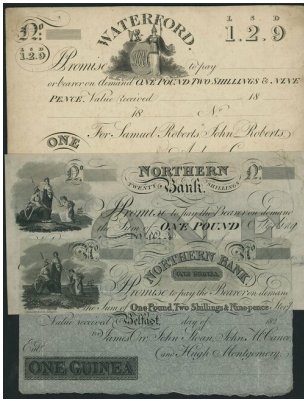 WATERFORD.
No.
L S D
1.2.9
L S D
1.2.9
Promise to pay
or bearer on demand ONE POUND TWO SHILLINGS & NINE
PENCE, Value received 18
18 No
ONE
For Samuel Roberts, John Roberts
No. NORTHERN No.
TWENTY SHILLINGS
Bank.
Promise to pay the Bearer on demand
the Sum of ONE POUND
No. No.
NORTHERN BANK
ONE GUINEA
Promise to pay the Bearer on demand
the Sum of One Pound, Two Shillings & Nine-pence Sterg
Value received Belfast, day of 182
James Orr, John Sloan, John McCance,
Ent. and Hugh Montgomery,
ONE GUINEA